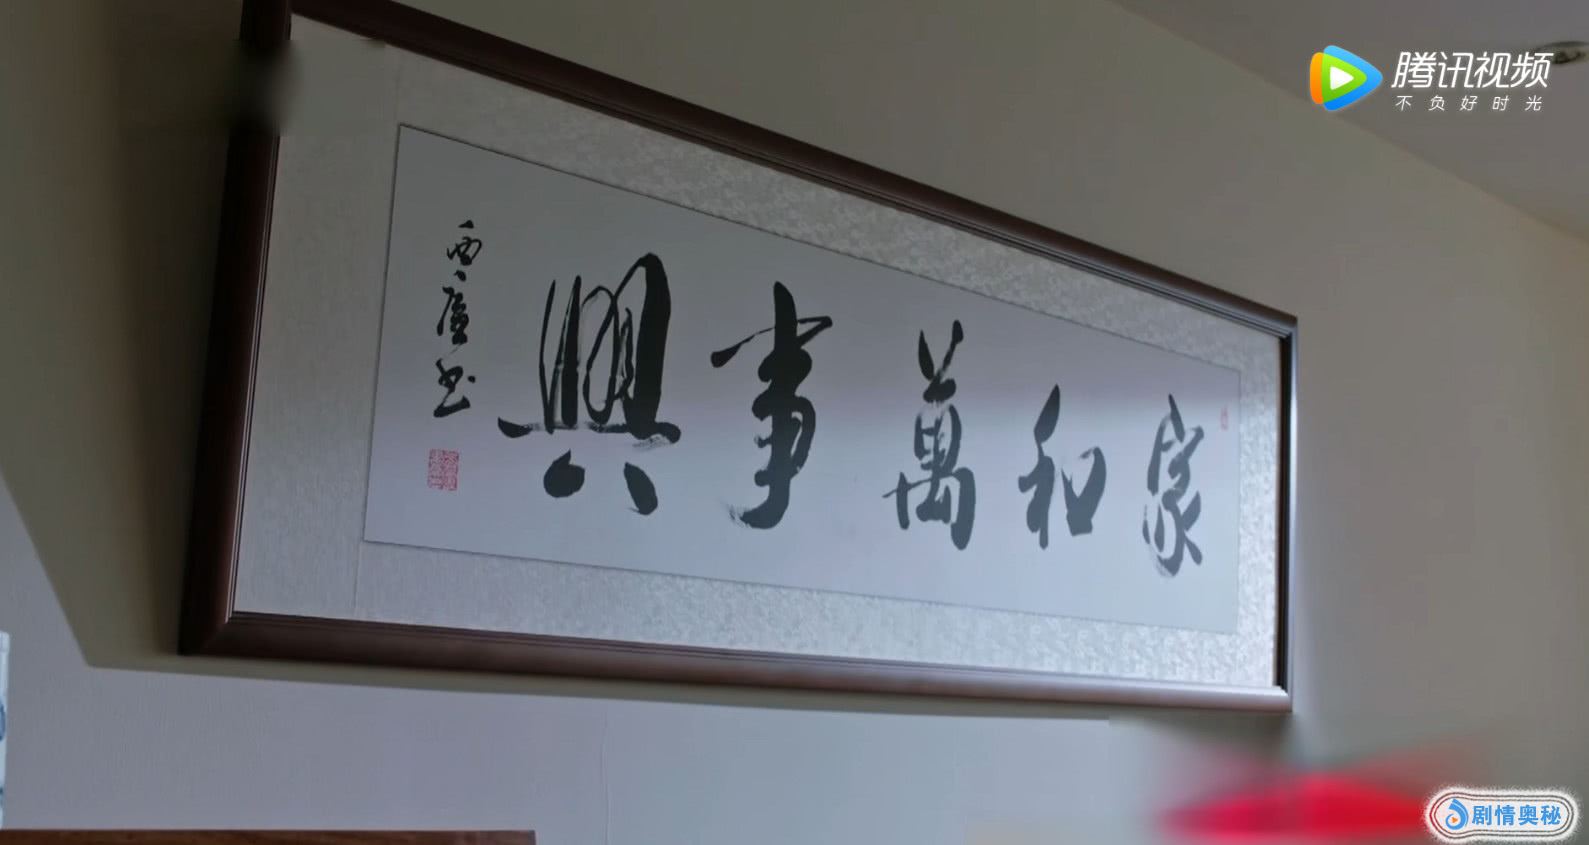 腾讯视频
不负好时光
家和萬事興
剧情奥秘